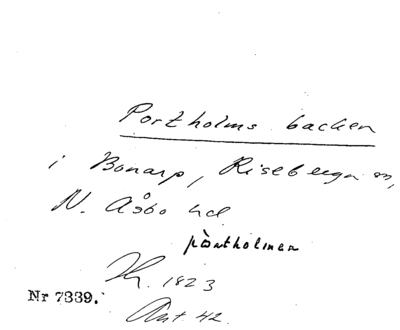 Portholms backen
i Bonarp, Riseberga sn,
N. Åsbo hd
pòrtholmen
Hg. 1823
Nr 7339.
Ant. 42.